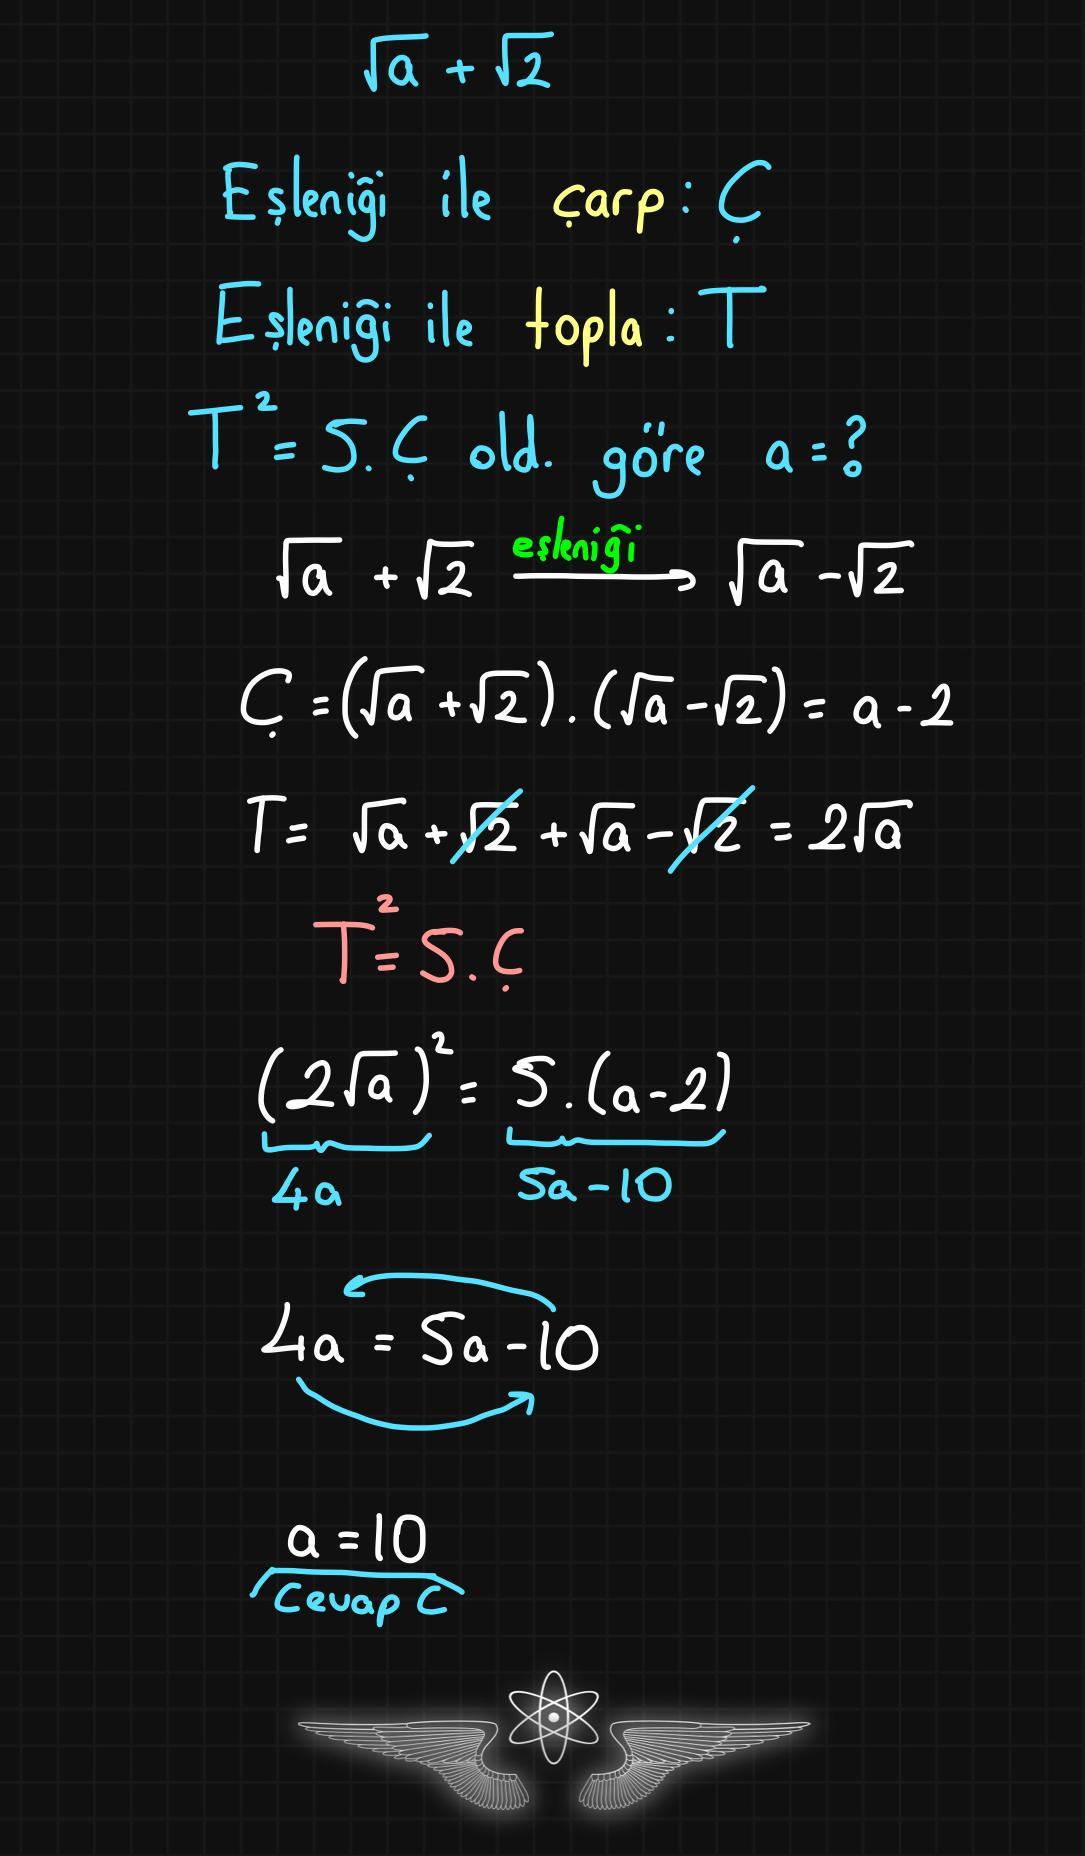 √a + √2
Eşleniği ile çarp : Ç
Eşleniği ile topla : T
T² = 5.Ç old. göre a = ?
√a + √2 eşleniği → √a - √2
Ç = (√a + √2) . (√a - √2) = a - 2
T = √a + √2 + √a - √2 = 2√a
T² = 5.Ç
(2√a)² = 5.(a-2)
4a 5a - 10
4a = 5a - 10
a = 10
Cevap C